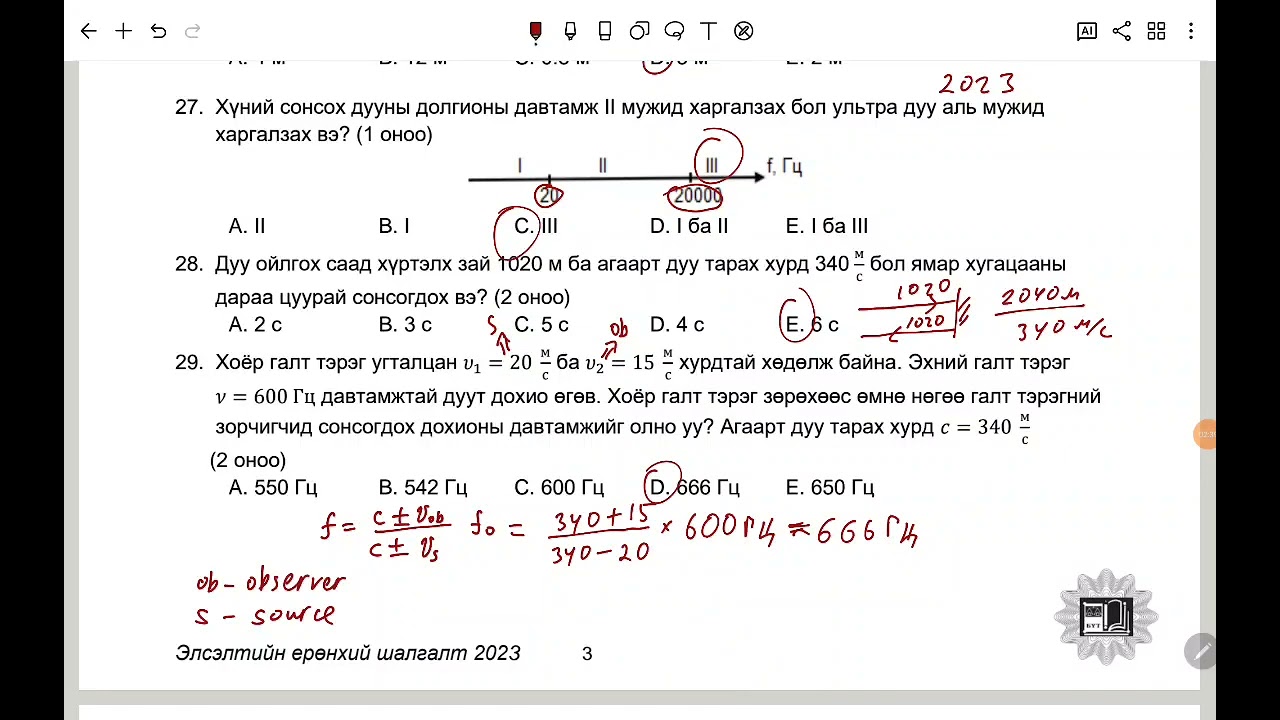 2023
27. Хүний сонсох дууны долгионы давтамж II мужид харгалзах бол ультра дуу аль мужид
харгалзах вэ? (1 оноо)
I II III f, Гц
20 20000
A. II B. I C. III D. I ба II E. I ба III
28. Дуу ойлгох саад хүртэлх зай 1020 м ба агаарт дуу тарах хурд 340 м/с бол ямар хугацааны
дараа цуурай сонсогдох вэ? (2 оноо)
1020 2040м
1020 340 м/с
A. 2 с B. 3 с C. 5 с D. 4 с E. 6 с
s ob
29. Хоёр галт тэрэг угталцан v₁ = 20 м/с ба v₂ = 15 м/с хурдтай хөдөлж байна. Эхний галт тэрэг
ν = 600 Гц давтамжтай дуут дохио өгөв. Хоёр галт тэрэг зөрөхөөс өмнө нөгөө галт тэрэгний
зорчигчид сонсогдох дохионы давтамжийг олно уу? Агаарт дуу тарах хурд c = 340 м/с
(2 оноо)
A. 550 Гц B. 542 Гц C. 600 Гц D. 666 Гц E. 650 Гц
f = (c ± v_ob)/(c ± v_s) f₀ = (340 + 15)/(340 − 20) × 600 Гц ≈ 666 Гц
ob – observer
s – source
БҮТ
Элсэлтийн ерөнхий шалгалт 2023 3